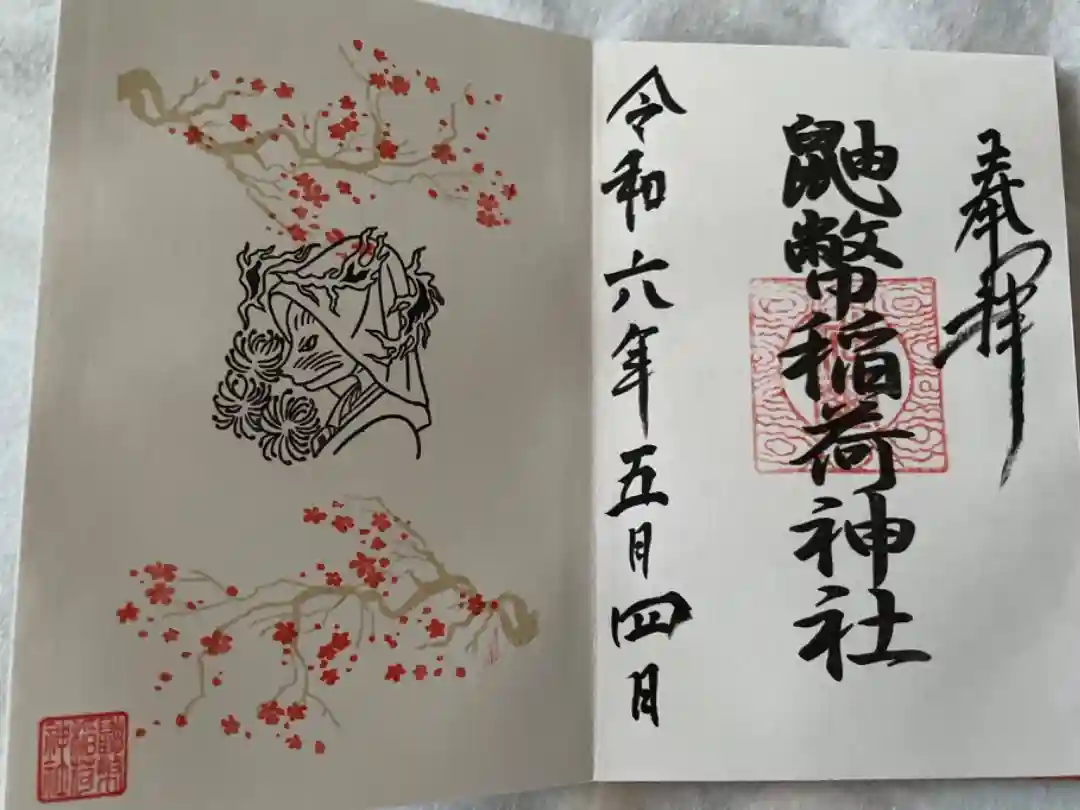 奉拝
鼬幣稲荷神社
令和六年五月四日
鼬幣
稲荷
神社